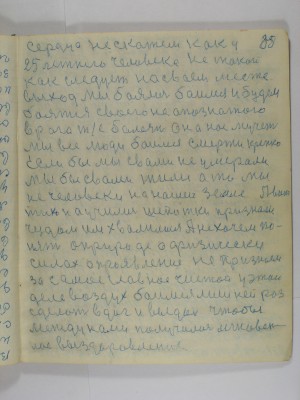 сердца не скажем как у 85
25 летнего человека не такой
как следует на своем месте.
выход мы боялися боимся и будем
боятся своего неопознатого
врага т/е болезни она нас мучает
мы все люди боимся смерти крепко
если бы мы с вами не умерали
мы бы с вами жили а то мы
не человеки на нашей земле
научили признали
чудом им хвалимся а не хочем по-
нять о природе о физических
силах а проявление не признали
за самое главное чистой у этом
деле воздух боимся лишней раз
сделать вдох и выдох чтобы
между нами получилося мгновен-
ное выздоровление.